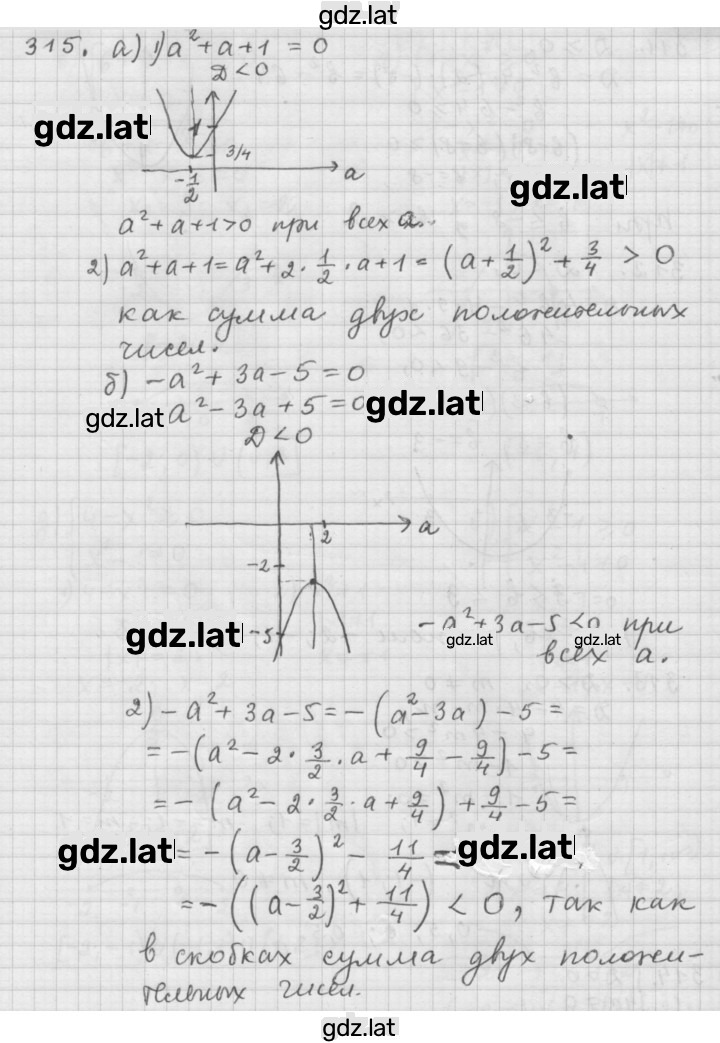 gdz.lat
315. а) 1) a² + a + 1 = 0
D < 0
gdz.lat
1
3/4
-1/2
a
gdz.lat
a² + a + 1 > 0 при всех a.
2) a² + a + 1 = a² + 2 · 1/2 · a + 1 = (a + 1/2)² + 3/4 > 0
как сумма двух положительных
чисел.
б) -a² + 3a - 5 = 0
gdz.lat a² - 3a + 5 = 0 gdz.lat
D < 0
a
2
-2
gdz.lat
-5
-a² + 3a - 5 < 0 при
gdz.lat gdz.lat
всех a.
2) -a² + 3a - 5 = -(a² - 3a) - 5 =
= -(a² - 2 · 3/2 · a + 9/4 - 9/4) - 5 =
= -(a² - 2 · 3/2 · a + 9/4) + 9/4 - 5 =
gdz.lat = -(a - 3/2)² - 11/4 = gdz.lat
= -((a - 3/2)² + 11/4) < 0, так как
в скобках сумма двух положи-
тельных чисел.
gdz.lat